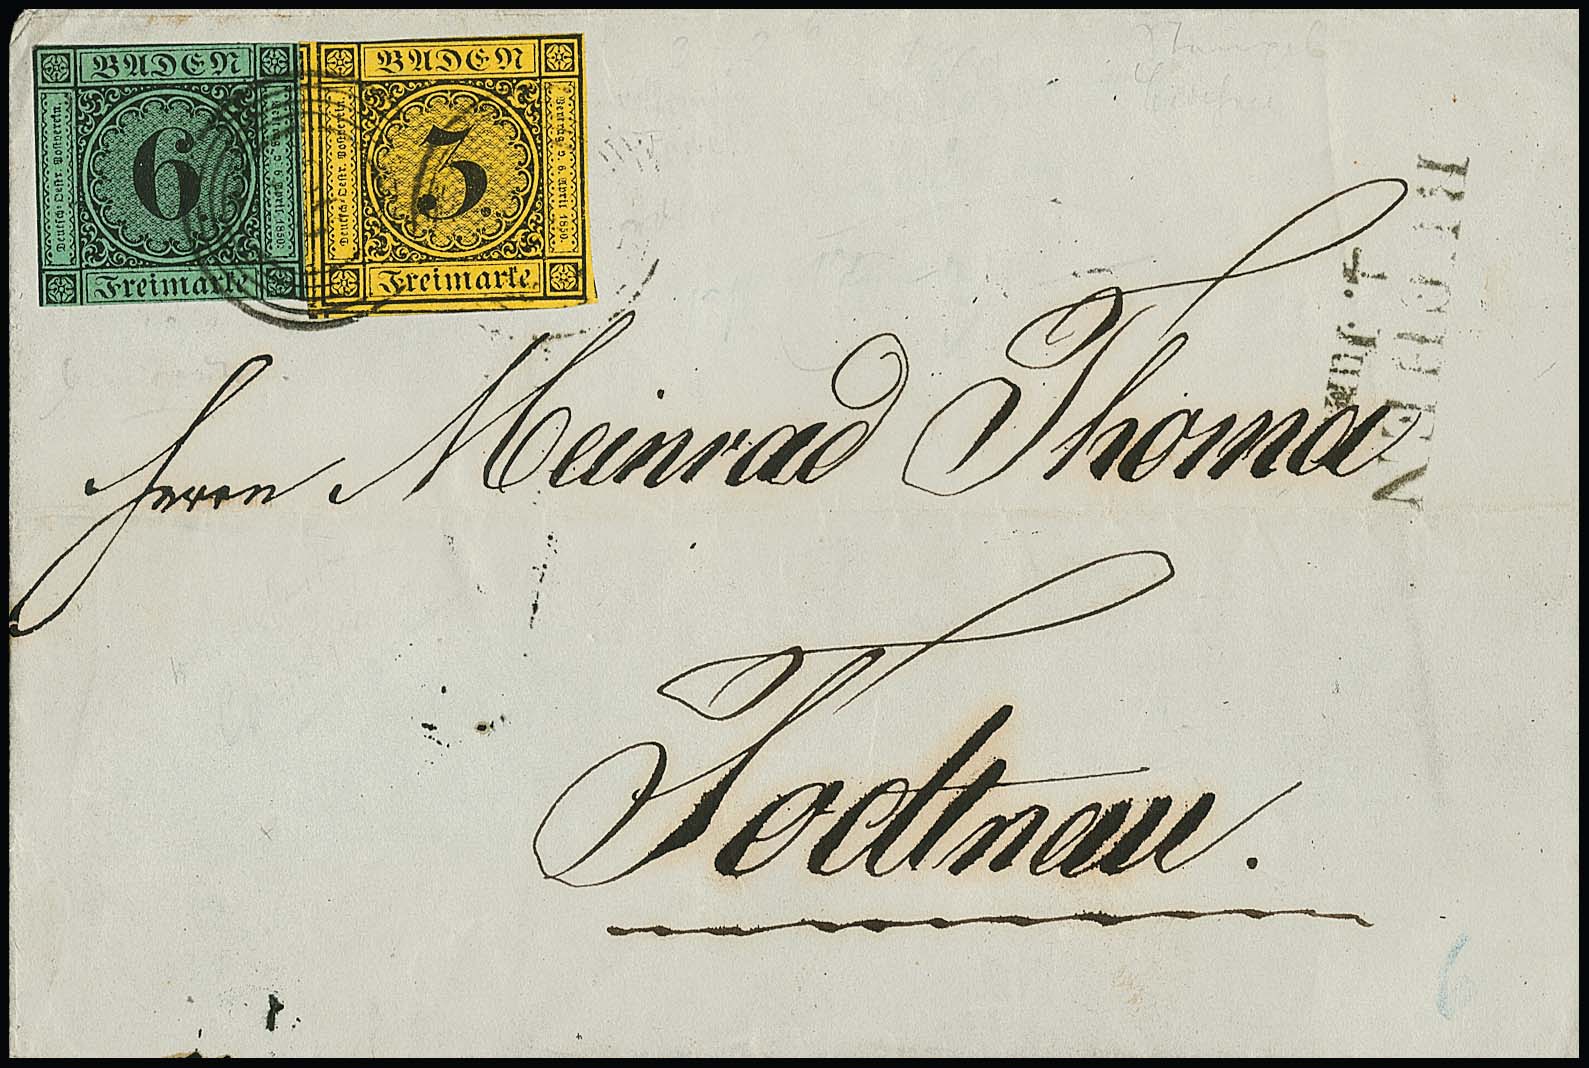 BADEN
Deutsch-Oestr. Postverein.
6
Freimarke
BADEN
Deutsch-Oestr. Postverein.
3
Vertrag v. 6. April 1850.
Freimarke.
Herrn Meinrad Thoma
Todtnau.
RIEGEL
6